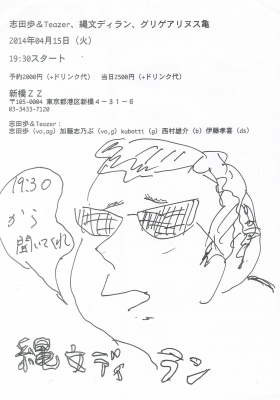 志田歩＆Teazer、縄文ディラン、グリゲアリヌス亀
2014年04月15日（火）
19:30スタート
予約2000円（+ドリンク代）　当日2500円（+ドリンク代）
新橋ＺＺ
〒105-0004 東京都港区新橋４－３１－６
03-3433-7120
志田歩＆Teazer：
志田歩（vo,ag）加藤志乃ぶ（vo,g）kubotti（g）西村雄介（b）伊藤孝喜（ds）
19:30
から
聞いてくれ
縄文ディラン